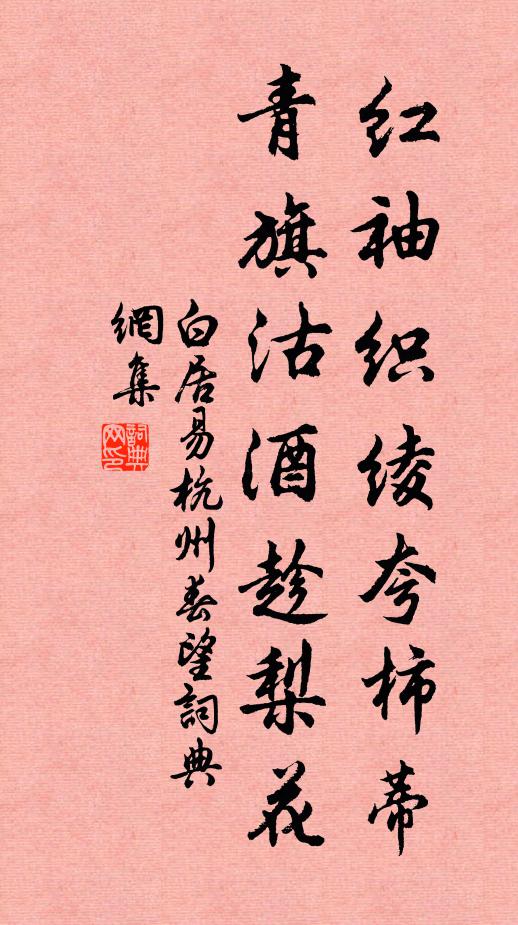 红袖织绫夸柿蒂
青旗沽酒趁梨花
白居易杭州春望詞典
網集
詞典
网印